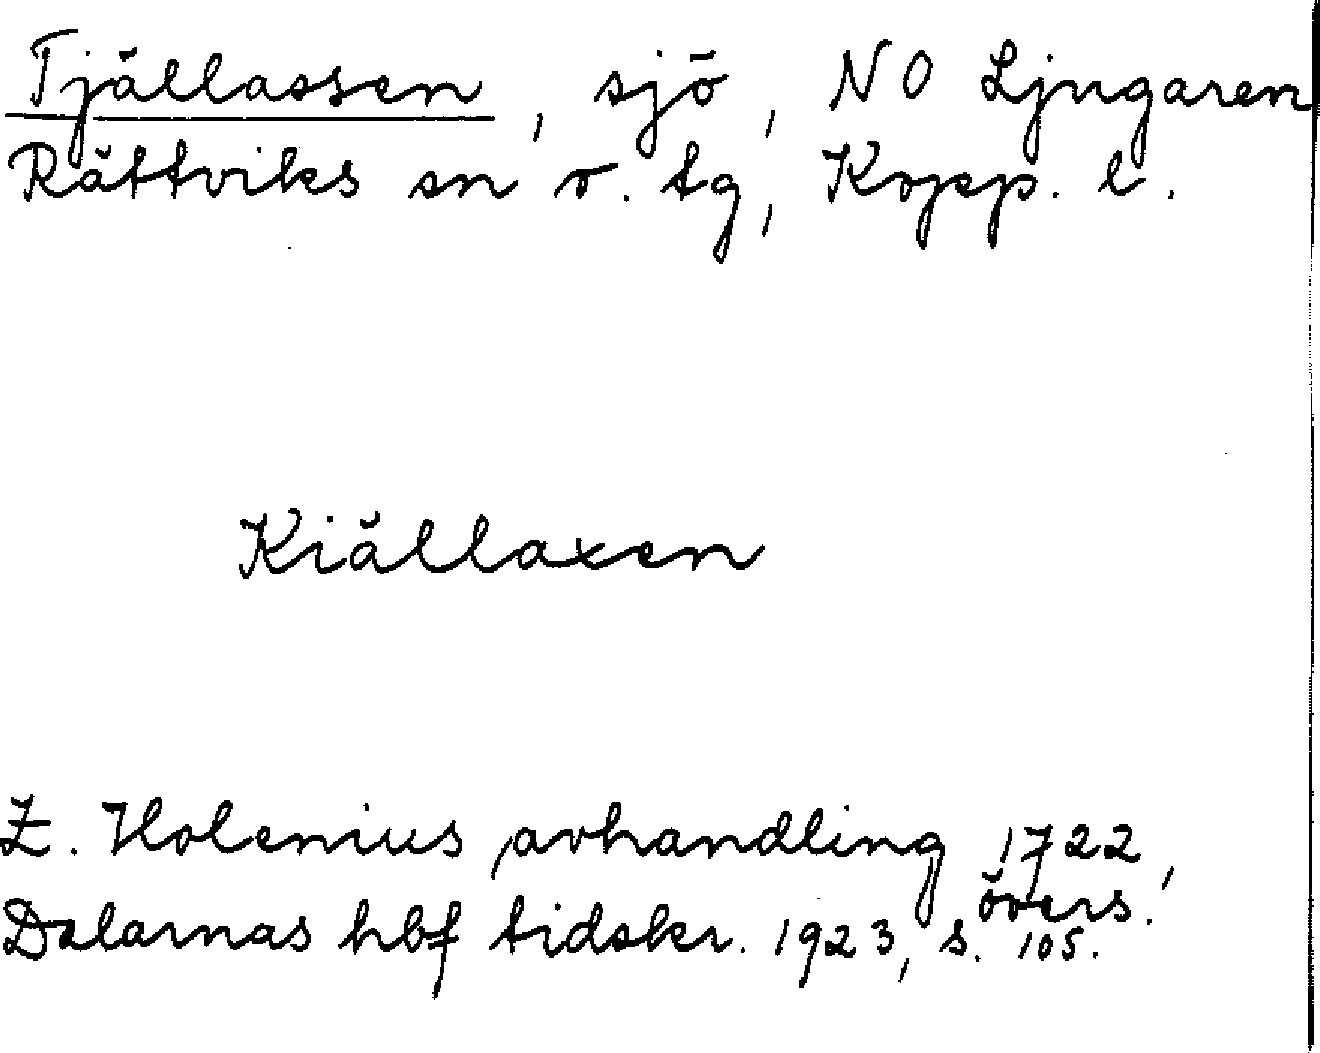 Tjällassen, sjö, NO Ljugaren
Rättviks sn o. tg, Kopp. l.
Kiällaxen
Z. Holenius, avhandling 1722,
övers.
Dalarnas hbf tidskr. 1923, s. 105.